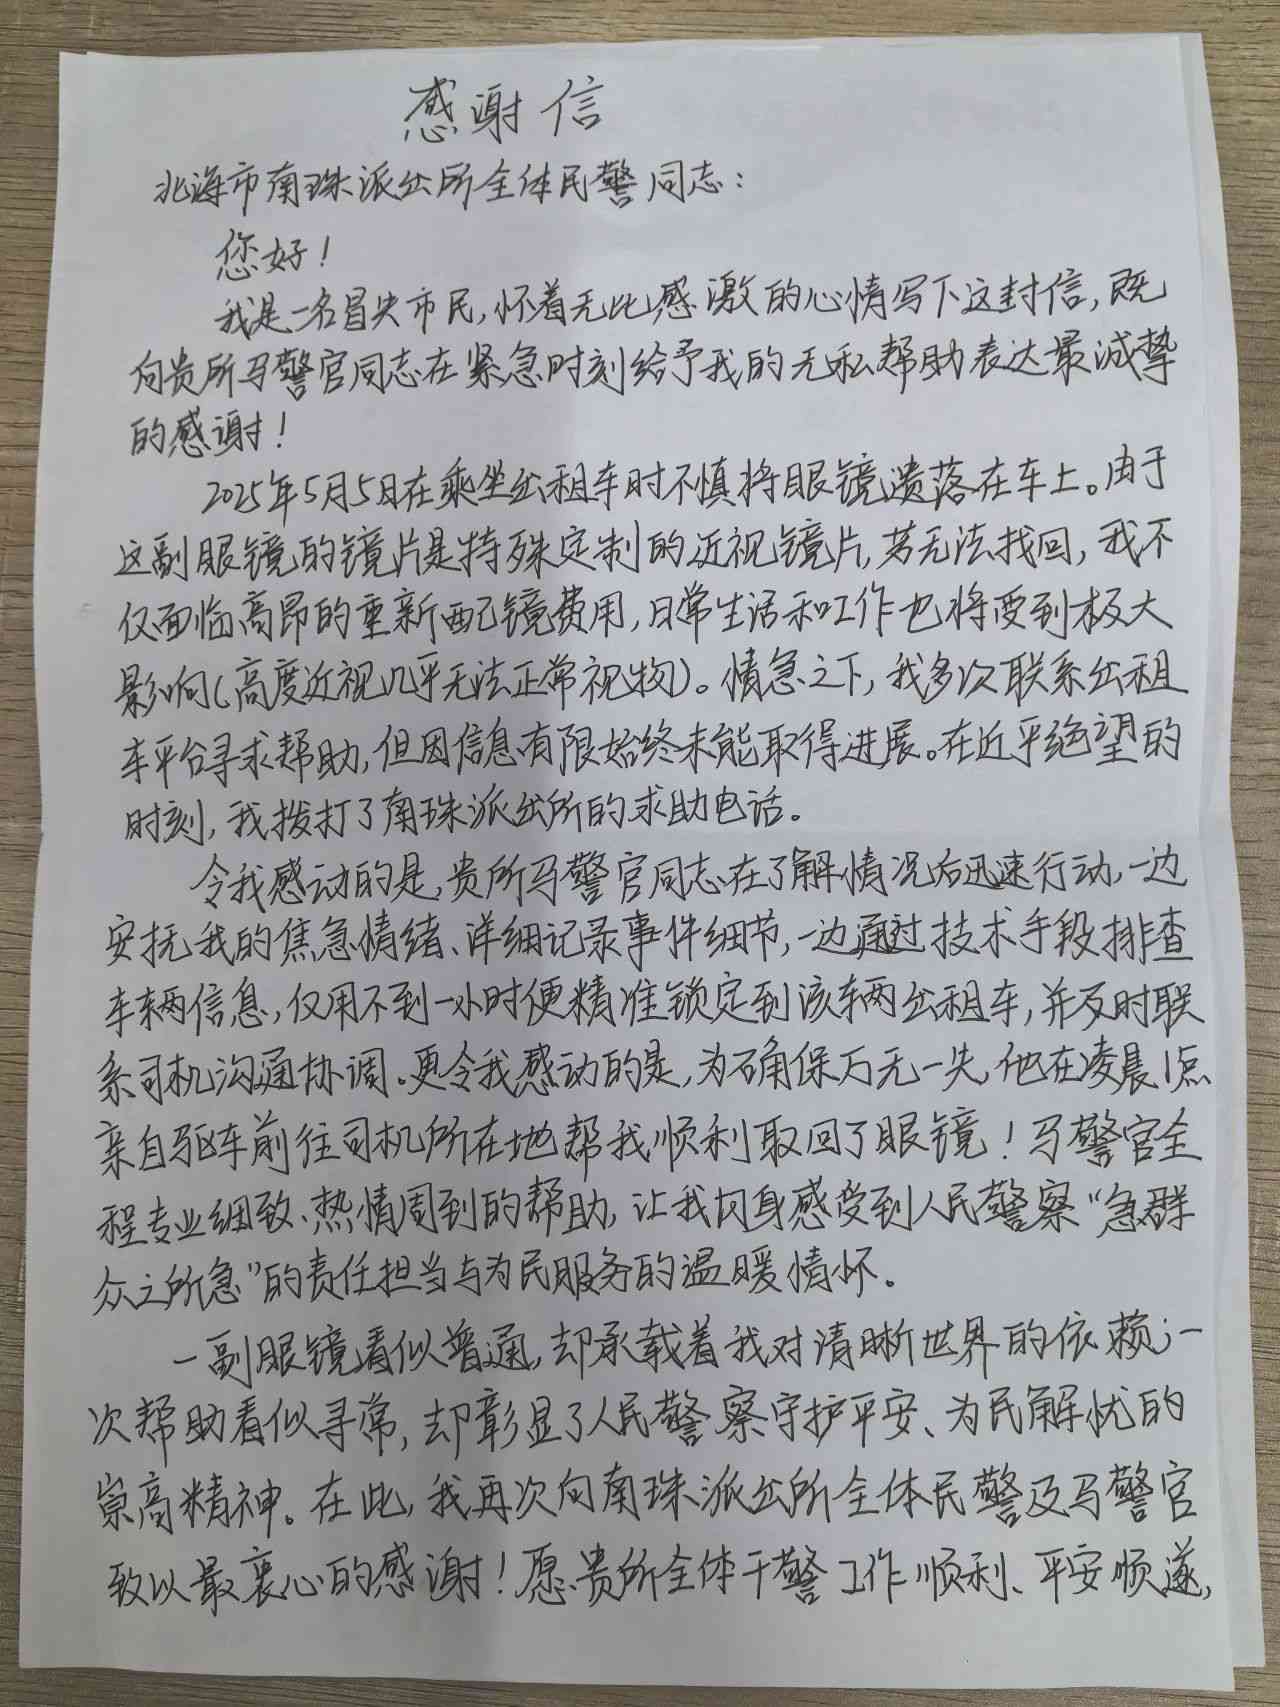 感谢信
北海市南珠派出所全体民警同志：
您好！
我是一名冒失市民，怀着无比感激的心情写下这封信，既
向贵所马警官同志在紧急时刻给予我的无私帮助表达最诚挚
的感谢！
2025年5月5日在乘坐出租车时不慎将眼镜遗落在车上。由于
这副眼镜的镜片是特殊定制的近视镜片，若无法找回，我不
仅面临高昂的重新配镜费用，日常生活和工作也将受到极大
影响（高度近视几乎无法正常视物）。情急之下，我多次联系出租
车平台寻求帮助，但因信息有限始终未能取得进展。在近乎绝望的
时刻，我拨打了南珠派出所的求助电话。
令我感动的是，贵所马警官同志在了解情况后迅速行动，一边
安抚我的焦急情绪、详细记录事件细节，一边通过技术手段排查
车辆信息，仅用不到一小时便精准锁定到该辆出租车，并及时联
系司机沟通协调。更令我感动的是，为确保万无一失，他在凌晨1点
亲自驱车前往司机所在地帮我顺利取回了眼镜！马警官全
程专业细致、热情周到的帮助，让我切身感受到人民警察“急群
众之所急”的责任担当与为民服务的温暖情怀。
一副眼镜看似普通，却承载着我对清晰世界的依赖；一
次帮助看似寻常，却彰显了人民警察守护平安、为民解忧的
崇高精神。在此，我再次向南珠派出所全体民警及马警官
致以最衷心的感谢！愿贵所全体干警工作顺利、平安顺遂，